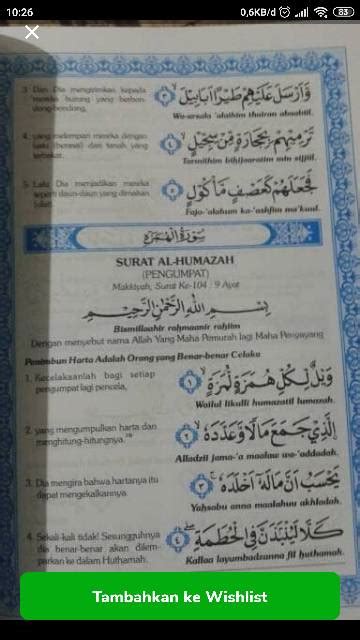 10:26
0,6KB/d
83
3. Dan Dia mengirimkan kepada
mereka burung yang berbon-
dong-bondong,
وَأَرْسَلَ عَلَيْهِمْ طَيْرًا أَبَابِيلَ ﴿٣﴾
Wa-arsala 'alaihim thairan abaabiil.
4. yang melempari mereka dengan
batu (berasal) dari tanah yang
terbakar,
تَرْمِيهِمْ بِحِجَارَةٍ مِّنْ سِجِّيلٍ ﴿٤﴾
Tarmiihim bihijaaratim min sijjiil.
5. Lalu Dia menjadikan mereka
seperti daun-daun yang dimakan
(ulat).
فَجَعَلَهُمْ كَعَصْفٍ مَّأْكُولٍ ﴿٥﴾
Faja-'alahum ka-'ashfim ma'kuul.
سُورَةُ الْهُمَزَةِ
SURAT AL-HUMAZAH
(PENGUMPAT)
Makkiyah, Surat Ke-104 : 9 Ayat
بِسْمِ اللهِ الرَّحْمٰنِ الرَّحِيْمِ
Bismillaahir rahmaanir rahiim
Dengan menyebut nama Allah Yang Maha Pemurah lagi Maha Penyayang
Penimbun Harta Adalah Orang yang Benar-benar Celaka
1. Kecelakaanlah bagi setiap
pengumpat lagi pencela,
وَيْلٌ لِّكُلِّ هُمَزَةٍ لُّمَزَةٍ ﴿١﴾
Wailul likulli humazatil lumazah.
2. yang mengumpulkan harta dan
menghitung-hitungnya.
الَّذِي جَمَعَ مَالًا وَّعَدَّدَهُ ﴿٢﴾
Alladzii jama-'a maalaw wa-'addadah.
3. Dia mengira bahwa hartanya itu
dapat mengekalkannya.
يَحْسَبُ أَنَّ مَالَهُ أَخْلَدَهُ ﴿٣﴾
Yahsabu anna maalahuu akhladah.
4. Sekali-kali tidak! Sesungguhnya
dia benar-benar akan dilem-
parkan ke dalam Huthamah.
كَلَّا لَيُنْبَذَنَّ فِي الْحُطَمَةِ ﴿٤﴾
Kallaa layumbadzanna fil huthamah.
Tambahkan ke Wishlist